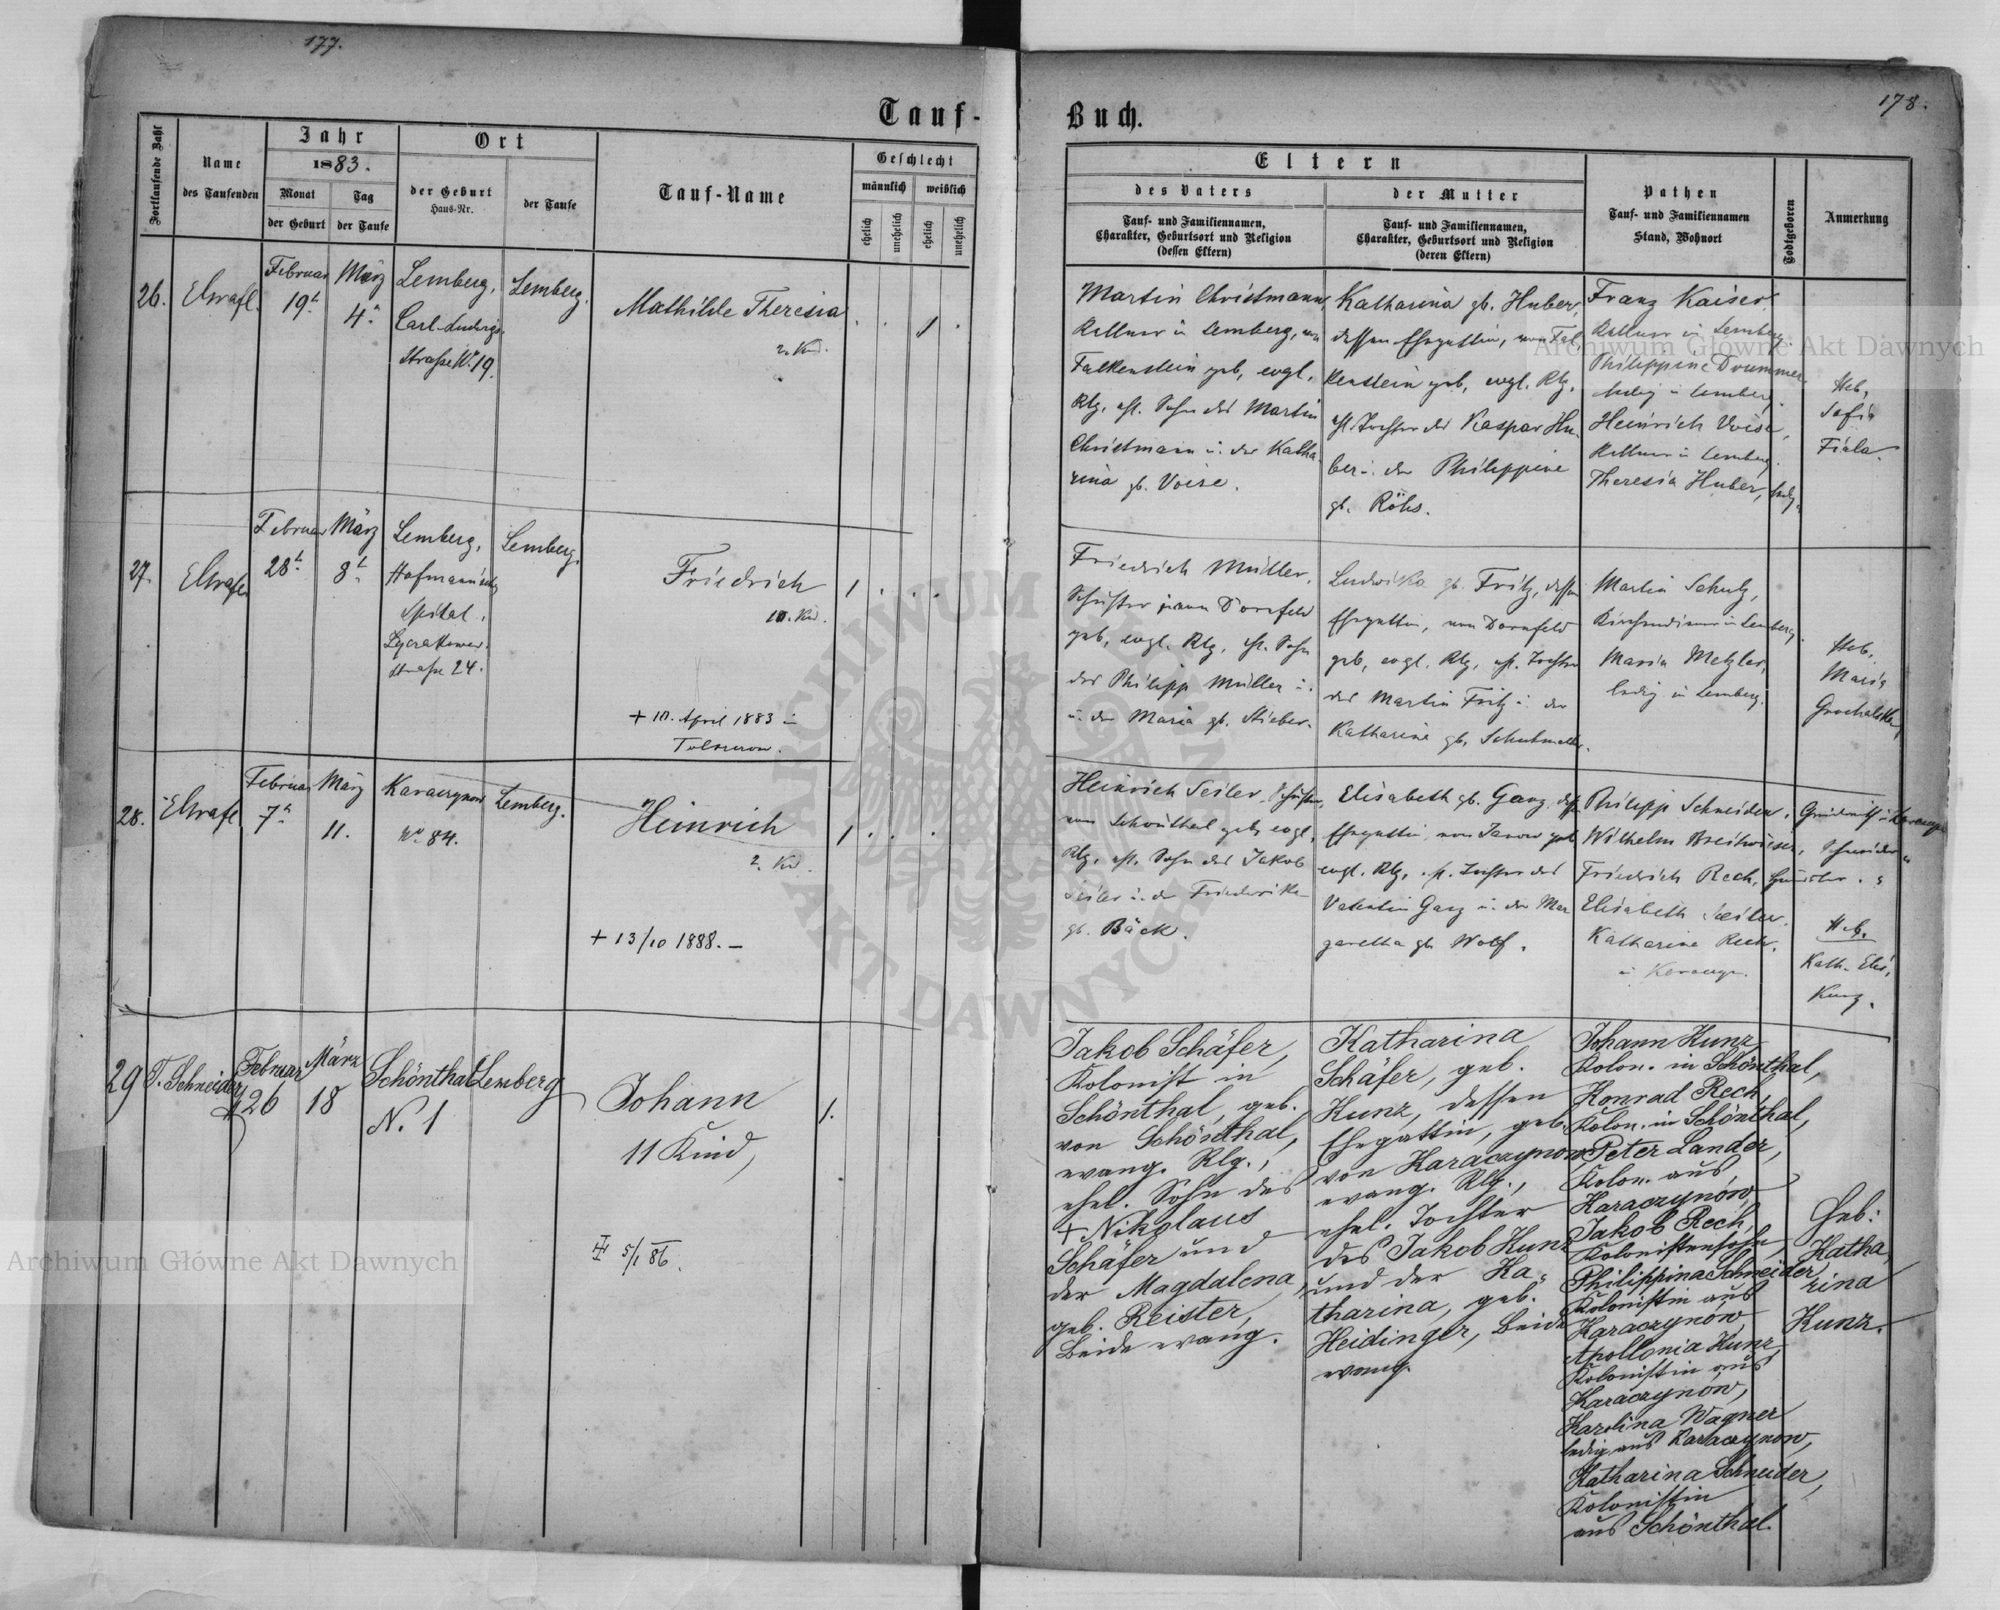 177.
Tauf-
Fortlaufende Zahl
Name
des Taufenden
Jahr
1883.
Monat
der Geburt
Tag
der Taufe
Ort
der Geburt
Haus-Nr.
der Taufe
Tauf-Name
Geschlecht
männlich
weiblich
ehelich
unehelich
ehelich
unehelich
26.
Februar
19
März
4
Lemberg,
Carl-Ludwigs
Straße No. 19.
Lemberg.
Mathilde Theresia
2. Kd.
1
27.
Februar
28
März
8
Lemberg,
Spital.
Straße 24.
Lemberg.
Friedrich
10. Kd.
+ 10. April 1883 in
1
28.
Februar
7
März
11.
Karaczynow
No. 84.
Lemberg.
Heinrich
2. Kd.
+ 13/10 1888. —
1
29
T. Schneider
Februar
26
März
18
Schönthal
N. 1
Lemberg
Johann
11 Kind,
5/1 86.
1.
Buch.
178.
Eltern
des Vaters
Tauf- und Familiennamen,
Charakter, Geburtsort und Religion
(dessen Eltern)
der Mutter
Tauf- und Familiennamen,
Charakter, Geburtsort und Religion
(deren Eltern)
Pathen
Tauf- und Familiennamen
Stand, Wohnort
Todtgeboren
Anmerkung
Martin Christmann,
Kellner in Lemberg, von
Falkenstein geb, evgl.
Rlg, ehl. Sohn des Martin
Christmann u. der Katha-
rina gb. Voise.
Katharina gb. Huber,
dessen Ehegattin, von Fal-
kenstein geb, evgl. Rlg,
ehl. Tochter des Kaspar Hu-
ber u. der Philippine
gb. Röhs.
Franz Kaiser
Kellner in Lemberg.
Philippine Drummer
ledig in Lemberg.
Heinrich Voise,
Kellner in Lemberg.
Theresia Huber, ledig
Heb.
Sofia
Fiala.
Friedrich Müller,
Schuster von Dornfeld
geb, evgl. Rlg, ehl. Sohn
des Philipp Müller
u. der Maria gb. Stieber.
Ludwika gb. Fritz, dessen
Ehegattin, von Dornfeld
geb, evgl. Rlg, ehl. Tochter
des Martin Fritz u. der
Katharine gb.
Martin Schulz,
Kirchendiener in Lemberg.
Maria Metzler,
ledig in Lemberg.
Heb.
Maria
Heinrich Seiler, Schuster,
von Schönthal geb, evgl.
Rlg, ehl. Sohn des Jakob
Seiler u. der Friederike
gb. Bäck.
Elisabeth gb. Ganz, dessen
Ehegattin, von Janow geb
evgl. Rlg, ehl. Tochter des
Valentin Ganz u. der Mar-
garetha gb. Wolf.
Philipp Schneider,
Wilhelm
Friedrich Rech,
Elisabeth Seiler,
Katharine Rech.
Heb.
Kath. Elis.
Kunz.
Jakob Schäfer,
Kolonist in
Schönthal, geb.
von Schönthal,
evang. Rlg.,
ehel. Sohn des
+ Nikolaus
Schäfer und
der Magdalena,
geb. Reister,
Beide evang.
Katharina
Schäfer, geb.
Kunz, dessen
Ehegattin, geb.
von Karaczynow,
evang. Rlg.,
ehel. Tochter
des Jakob Kunz
und der Ka-
tharina, geb.
Heidinger, Beide
evang.
Johann Kunz
Kolon. in Schönthal,
Konrad Rech,
Kolon. in Schönthal,
Peter Lander,
Kolon. aus
Karaczynów,
Jakob Rech,
Kolonistensohn,
Philippina Schneider
Kolonistin aus
Karaczynów,
Apollonia Kunz,
Kolonistin aus
Karaczynów,
Karolina Wagner
ledig aus Karaczynow,
Katharina Schneider,
Kolonistin
aus Schönthal.
Heb:
Katha-
rina
Kunz.
Archiwum Główne Akt Dawnych
Archiwum Główne Akt Dawnych
ARCHIWUM GŁÓWNE AKT DAWNYCH